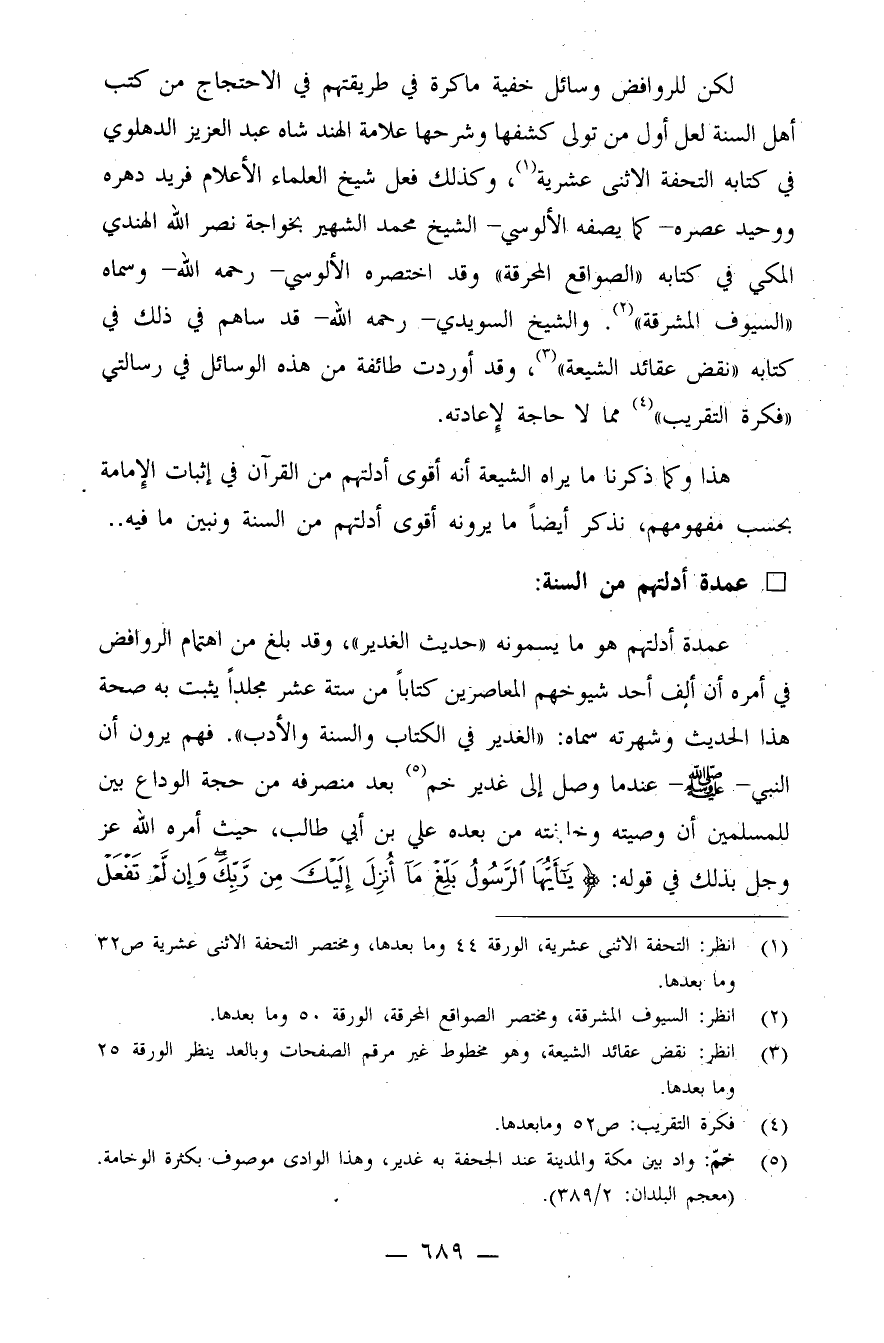 لكن للروافض وسائل خفية ماكرة في طريقتهم في الاحتجاج من كتب
أهل السنة لعل أول من تولى كشفها وشرحها علامة الهند شاه عبد العزيز الدهلوي
في كتابه التحفة الاثنى عشرية(١)، وكذلك فعل شيخ العلماء الأعلام فريد دهره
ووحيد عصره– كما يصفه الألوسي– الشيخ محمد الشهير بخواجة نصر الله الهندي
المكي في كتابه «الصواقع المحرقة» وقد اختصره الألوسي– رحمه الله– وسماه
«السيوف المشرقة»(٢). والشيخ السويدي– رحمه الله– قد ساهم في ذلك في
كتابه «نقض عقائد الشيعة»(٣)، وقد أوردت طائفة من هذه الوسائل في رسالتي
«فكرة التقريب»(٤) مما لا حاجة لإعادته.
هذا وكما ذكرنا ما يراه الشيعة أنه أقوى أدلتهم من القرآن في إثبات الإمامة
بحسب مفهومهم، نذكر أيضاً ما يرونه أقوى أدلتهم من السنة ونبين ما فيه..
□ عمدة أدلتهم من السنة:
عمدة أدلتهم هو ما يسمونه «حديث الغدير»، وقد بلغ من اهتمام الروافض
في أمره أن ألف أحد شيوخهم المعاصرين كتاباً من ستة عشر مجلداً يثبت به صحة
هذا الحديث وشهرته سماه: «الغدير في الكتاب والسنة والأدب». فهم يرون أن
النبي– ﷺ– عندما وصل إلى غدير خم(٥) بعد منصرفه من حجة الوداع بين
للمسلمين أن وصيته من بعده علي بن أبي طالب، حيث أمره الله عز
وجل بذلك في قوله: ﴿ يَٰٓأَيُّهَا ٱلرَّسُولُ بَلِّغۡ مَآ أُنزِلَ إِلَيۡكَ مِن رَّبِّكَۖ وَإِن لَّمۡ تَفۡعَلۡ
(١) انظر: التحفة الاثنى عشرية، الورقة ٤٤ وما بعدها، ومختصر التحفة الاثنى عشرية ص٣٢
وما بعدها.
(٢) انظر: السيوف المشرقة، ومختصر الصواقع المحرقة، الورقة ٥٠ وما بعدها.
(٣) انظر: نقض عقائد الشيعة، وهو مخطوط غير مرقم الصفحات وبالعد ينظر الورقة ٢٥
وما بعدها.
(٤) فكرة التقريب: ص٥٢ ومابعدها.
(٥) خمّ: واد بين مكة والمدينة عند الجحفة به غدير، وهذا الوادى موصوف بكثرة الوخامة.
(معجم البلدان: ٣٨٩/٢).
— ٦٨٩ —